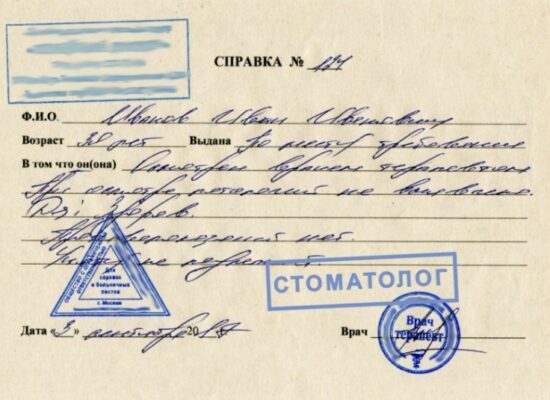 СПРАВКА № 124
Ф.И.О. Иванов Иван Иванович
Возраст 38 лет Выдана По месту требования
В том что он(она) Осмотрен врачом терапевтом
При осмотре патологий не выявлено.
Ds: Здоров.
нет.
СТОМАТОЛОГ
Для
справок
и больничных
листов
г. Москва
Дата «3» 20 Врач
Врач
терапевт